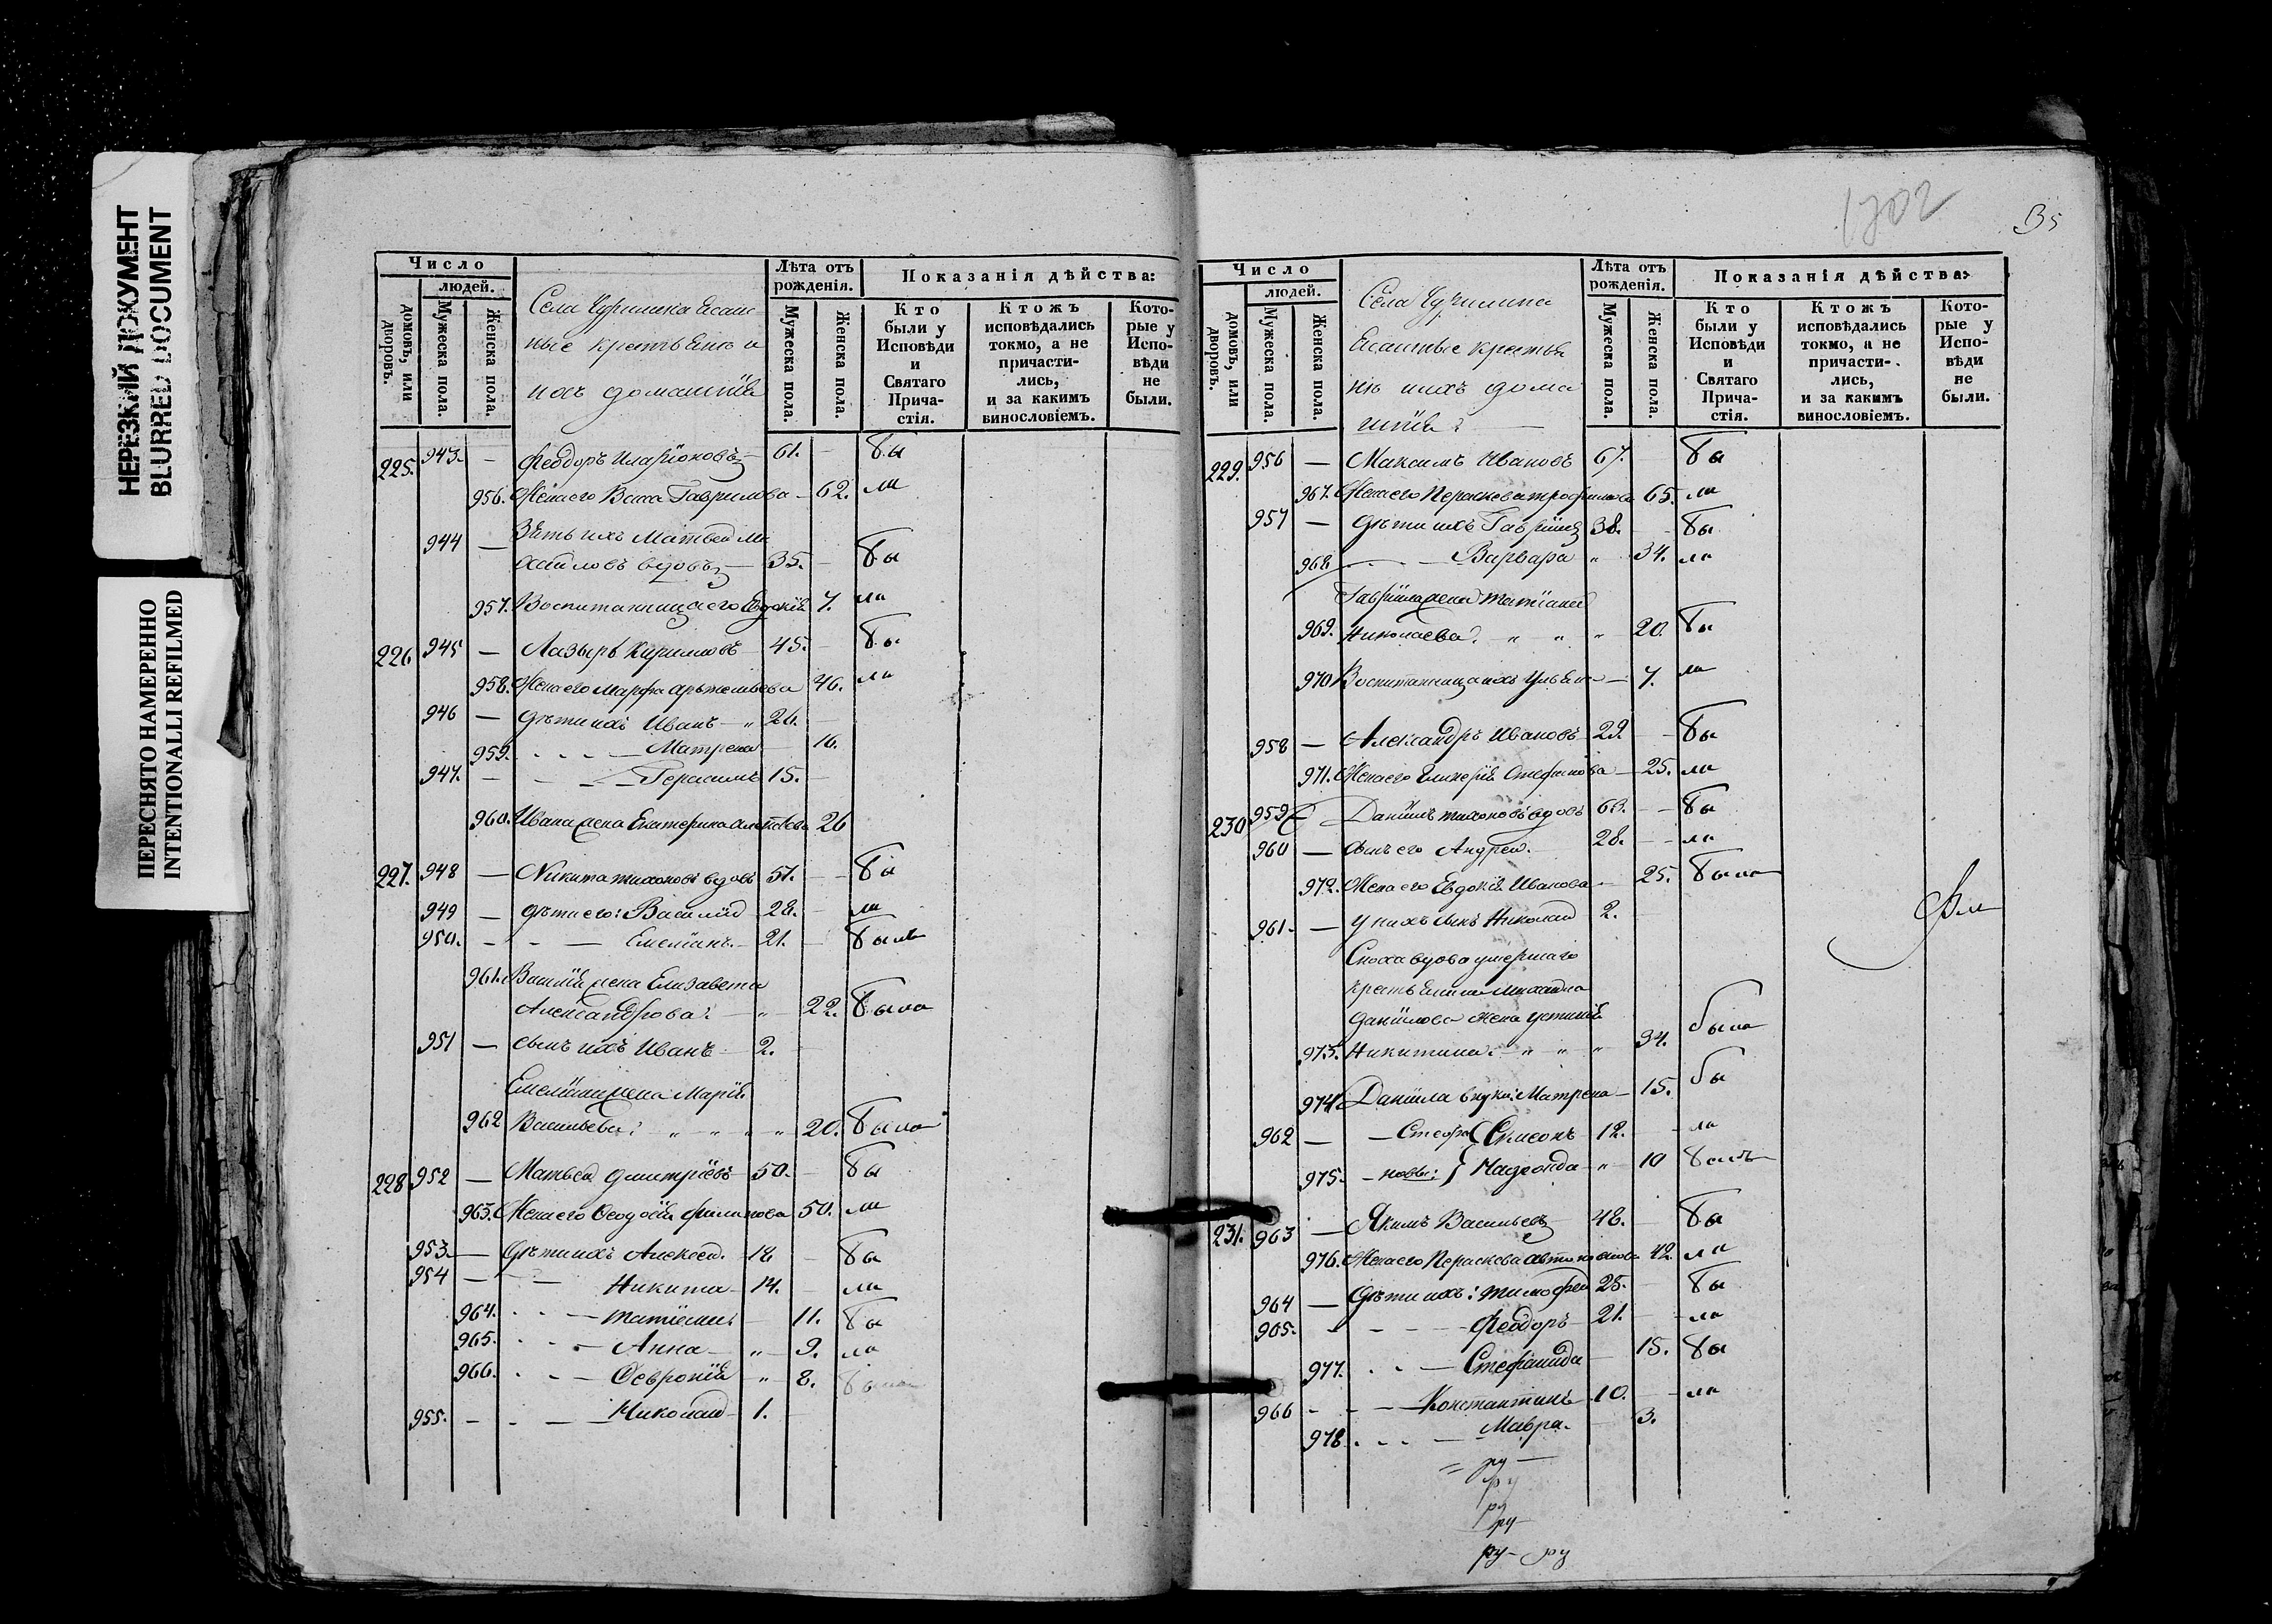 НЕРЕЗКИЙ ДОКУМЕНТ
BLURRED DOCUMENT
ПЕРЕСНЯТО НАМЕРЕННО
INTENTIONALLI REFILMED
Число
людей.
домовъ, или дворовъ.
Мужеска пола.
Женска пола.
Села Чурилина Ясаш-
ные крестьяне и
ихъ домашнiя
Лѣта отъ рожденiя.
Мужеска пола.
Женска пола.
Показанiя дѣйства:
Кто были у Исповѣди и Святаго Прича-стiя.
Ктожъ исповѣдались токмо, а не причасти-лись, и за какимъ винословiемъ.
Кото-рые у Испо-вѣди не были.
225. 943. — Феодоръ Иларiоновъ — 61. — бы
956. Жена его Васса Гаврилова — 62. ли
944 — Зять ихъ Матвей Ми
хайловъ вдовъ — 35. — бы
957. Воспитанница его Евдокiя 7. ла
226 945 — Лазырь Кириловъ 45. — бы
958. Жена его Марфа Артемьева 46. ли
946 — дѣти ихъ Иванъ — " 26. —
959. - - - — Матрена — 16.
947. — - - — Герасимъ 15. —
960. Ивана жена Екатерина Алексѣева 26
227. 948 — Никита Тихоновъ вдовъ 51. — бы
949 — дѣти его: Василiй 28. — ли
950. - - — Емелiанъ. 21. — былъ
961. Василiя жена Елизавета
Александрова: — " 22. была
951 — сынъ ихъ Иванъ 2. —
Емелiана жена Марiя
962 Васильева: " " " " 20. была
228 952 — Матвей Димитрiевъ 50. — бы
963. Жена его Феодосiя Филипова 50. ли
953 — Дѣти ихъ Алексей. 18 — бы
954 — - — Никита 14. — ли
964. - - — Татiана — 11. бы
965. - - - Анна — " 9. ла
966. - - — Феврония " 8. была
955. - - — Николай 1. —
1702
35
Число
людей.
домовъ, или дворовъ.
Мужеска пола.
Женска пола.
Села Чурилина
Ясашные крестья
не ихъ дома
шнiя: —
Лѣта отъ рожденiя.
Мужеска пола.
Женска пола.
Показанiя дѣйства:
Кто были у Исповѣди и Святаго Прича-стiя.
Ктожъ исповѣдались токмо, а не причасти-лись, и за какимъ винословiемъ.
Кото-рые у Испо-вѣди не были.
229. 956 — Максимъ Ивановъ 67. — бы
967. Жена его Параскева Трофимова 65. ли
957 — дѣти ихъ Гаврiилъ 38. — бы
968 - - — Варвара " 34. ла
Гаврiила жена Татiана
969. Николаева. " " " 20. бы
970 Воспитанница ихъ Ульяна — 7. ла
958 — Александръ Ивановъ 29. — бы
971. Жена его Гликерiя Стефанова — 25. ли
230 959 — Данiилъ Тихоновъ вдовъ 63. — бы
960 — сынъ его Андрей. 28. — ли
972. Жена его Евдокiя Иванова — 25. была
961. — у нихъ сынъ Николай 2.
Сноха вдова умершаго
крестьянина Михаила
Данiилова жена Устинiя
973. Никитина: " " " 34. была
974 Данiила внуки: Матрена — 15. бы
962 — — Стефа { Симеонъ 12. — ла
975. — новы: } Надежда — " 10 былъ
231. 963 — Якимъ Васильевъ 48. — бы
976. Жена его Параскева Автономова 42. ли
964 — Дѣти ихъ: Тимофей 25. — бы
965. - - - — Феодоръ 21. — ли
977. - - — Стефанида — 15. бы
966 - - — Константинъ 10. — ла
978. - - - — Мавра. — 3.
ру —
ру
ру
ру
ру - ру